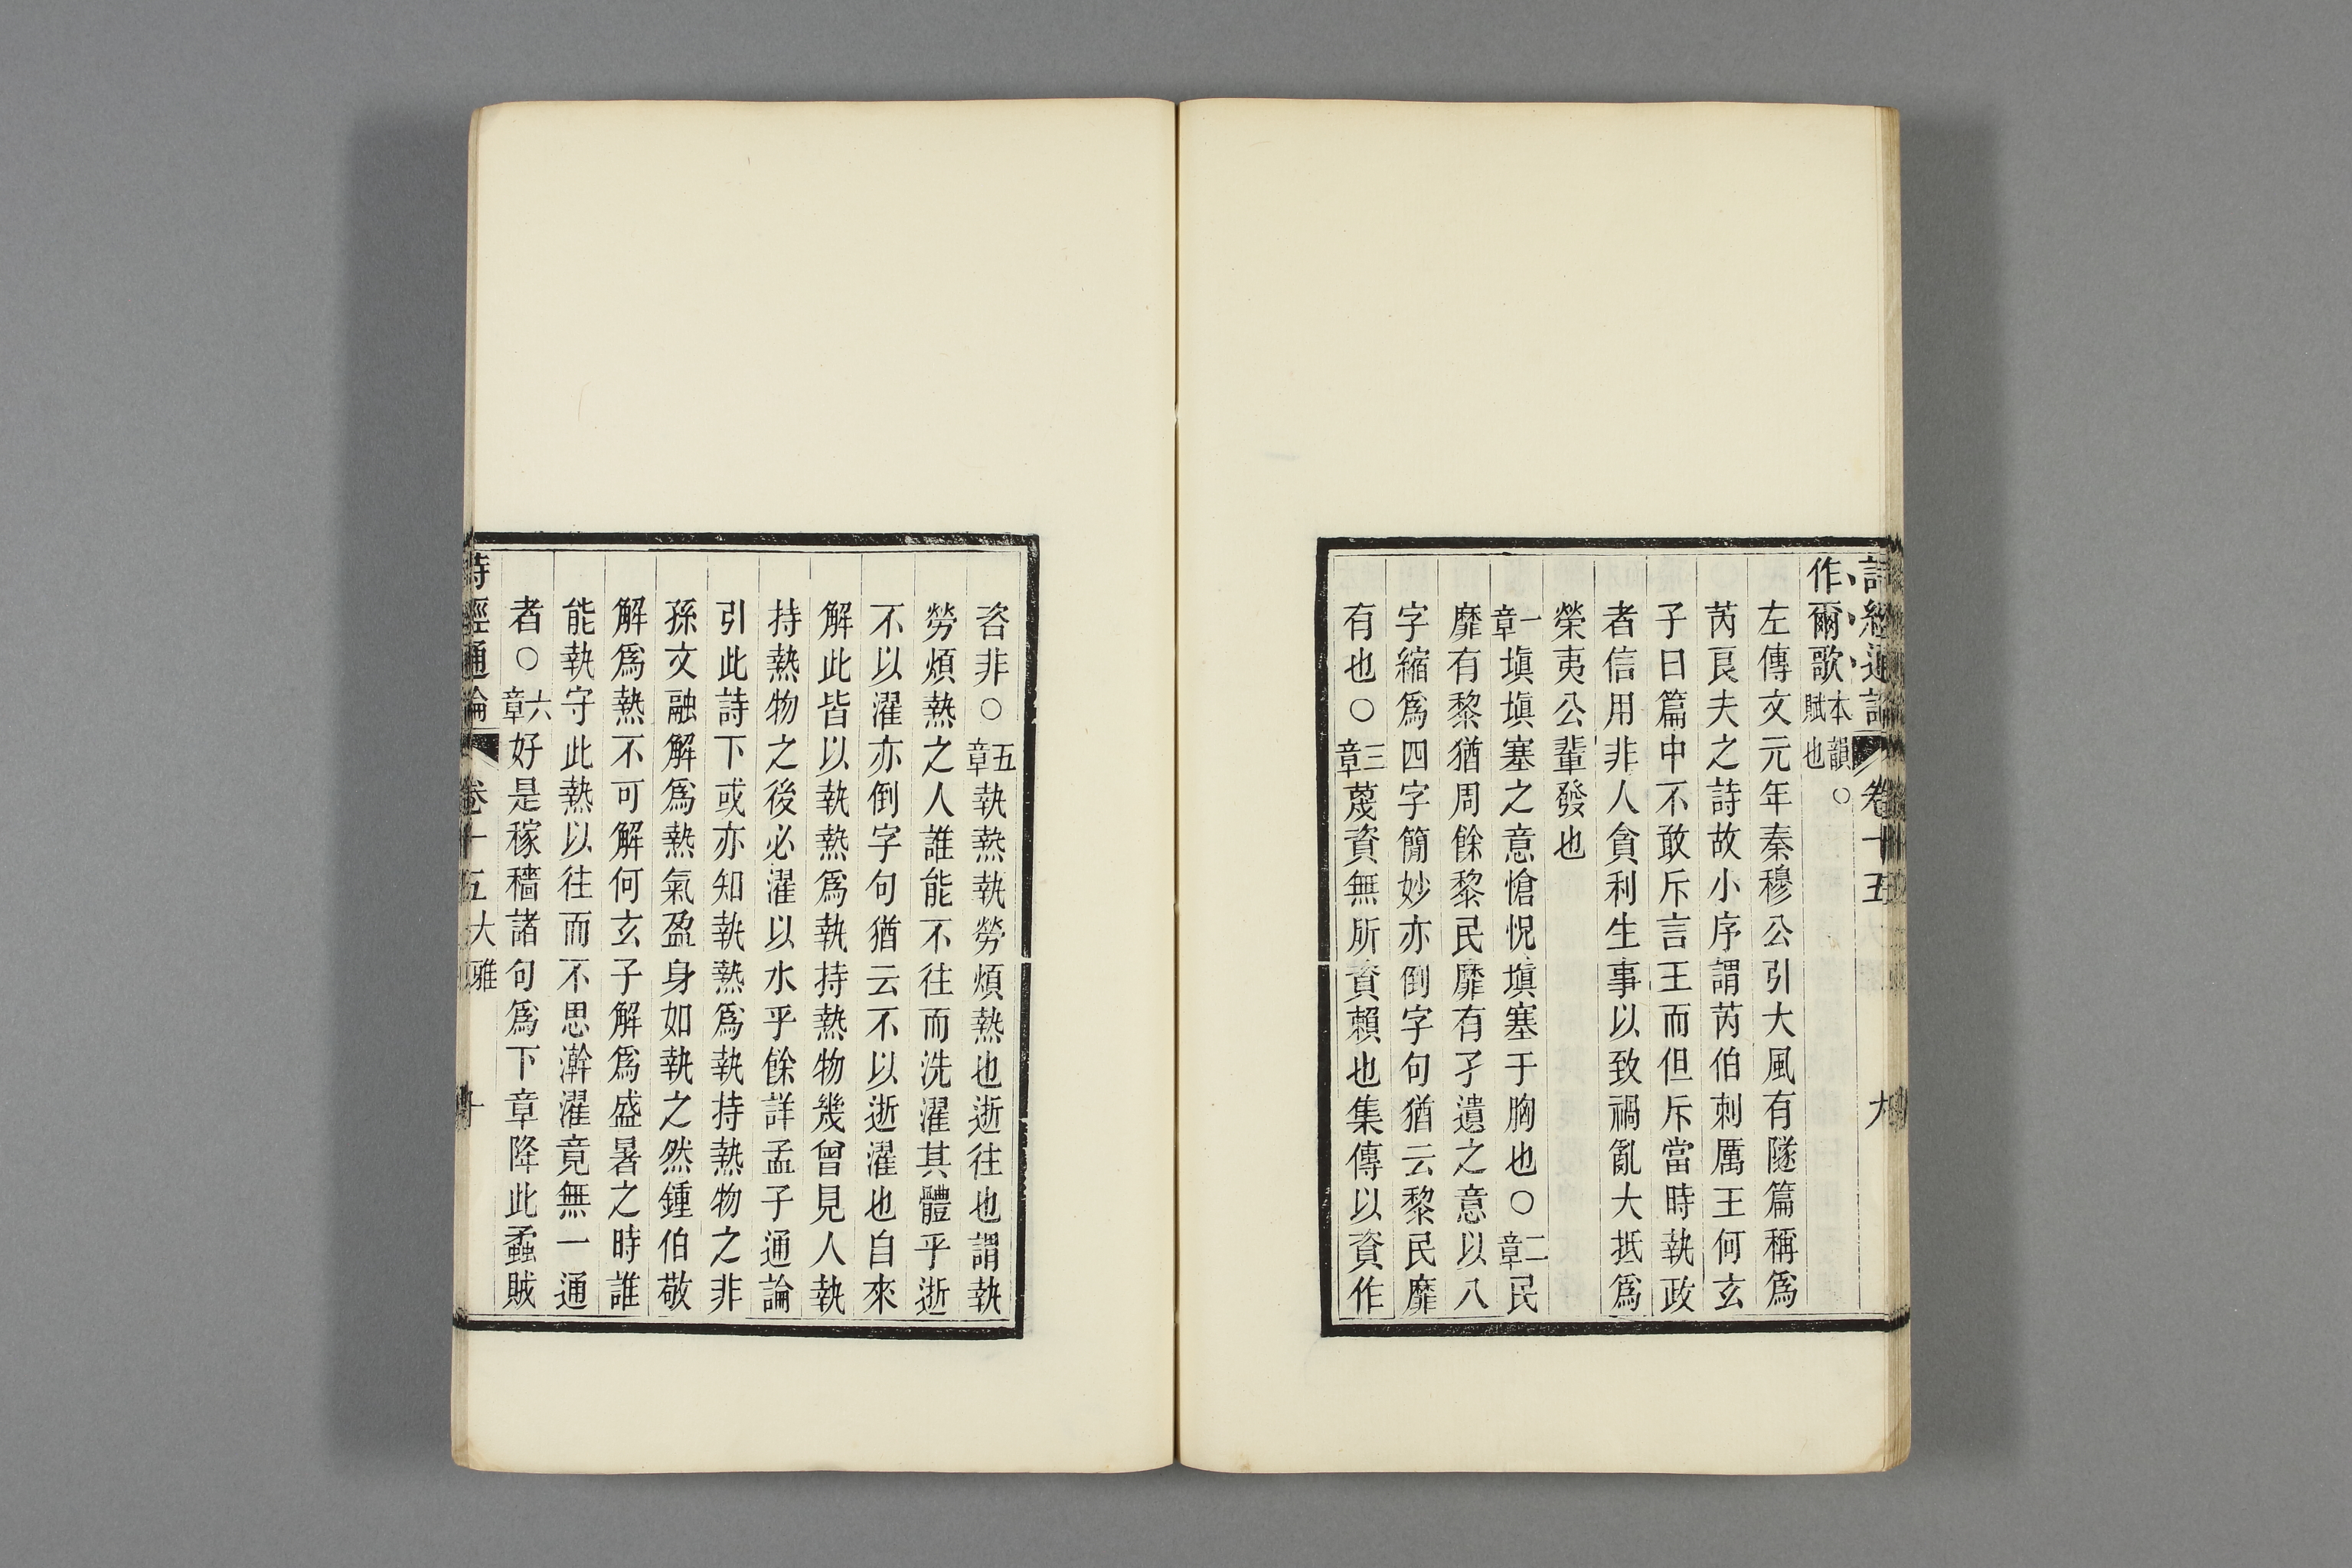 詩經通論 卷十五 九
作爾歌本韻○賦也
左傳文元年秦穆公引大風有隧篇稱爲
芮良夫之詩故小序謂芮伯刺厲王何玄
子曰篇中不敢斥言王而但斥當時執政
者信用非人貪利生事以致禍亂大抵爲
榮夷公輩發也
一章塡塡塞之意愴怳塡塞于胸也○二章民
靡有黎猶周餘黎民靡有孑遺之意以八
字縮爲四字簡妙亦倒字句猶云黎民靡
有也○三章蔑資無所資賴也集傳以資作
咨非○五章執熱執勞煩熱也逝往也謂執
勞煩熱之人誰能不往而洗濯其體乎逝
不以濯亦倒字句猶云不以逝濯也自來
解此皆以執熱爲執持熱物幾曾見人執
持熱物之後必濯以水乎餘詳孟子通論
引此詩下或亦知執熱爲執持熱物之非
孫文融解爲熱氣盈身如執之然鍾伯敬
解爲熱不可解何玄子解爲盛暑之時誰
能執守此熱以往而不思澣濯竟無一通
者○六章好是稼穡諸句爲下章降此蟊賊
詩經通論 卷十五 大雅 十